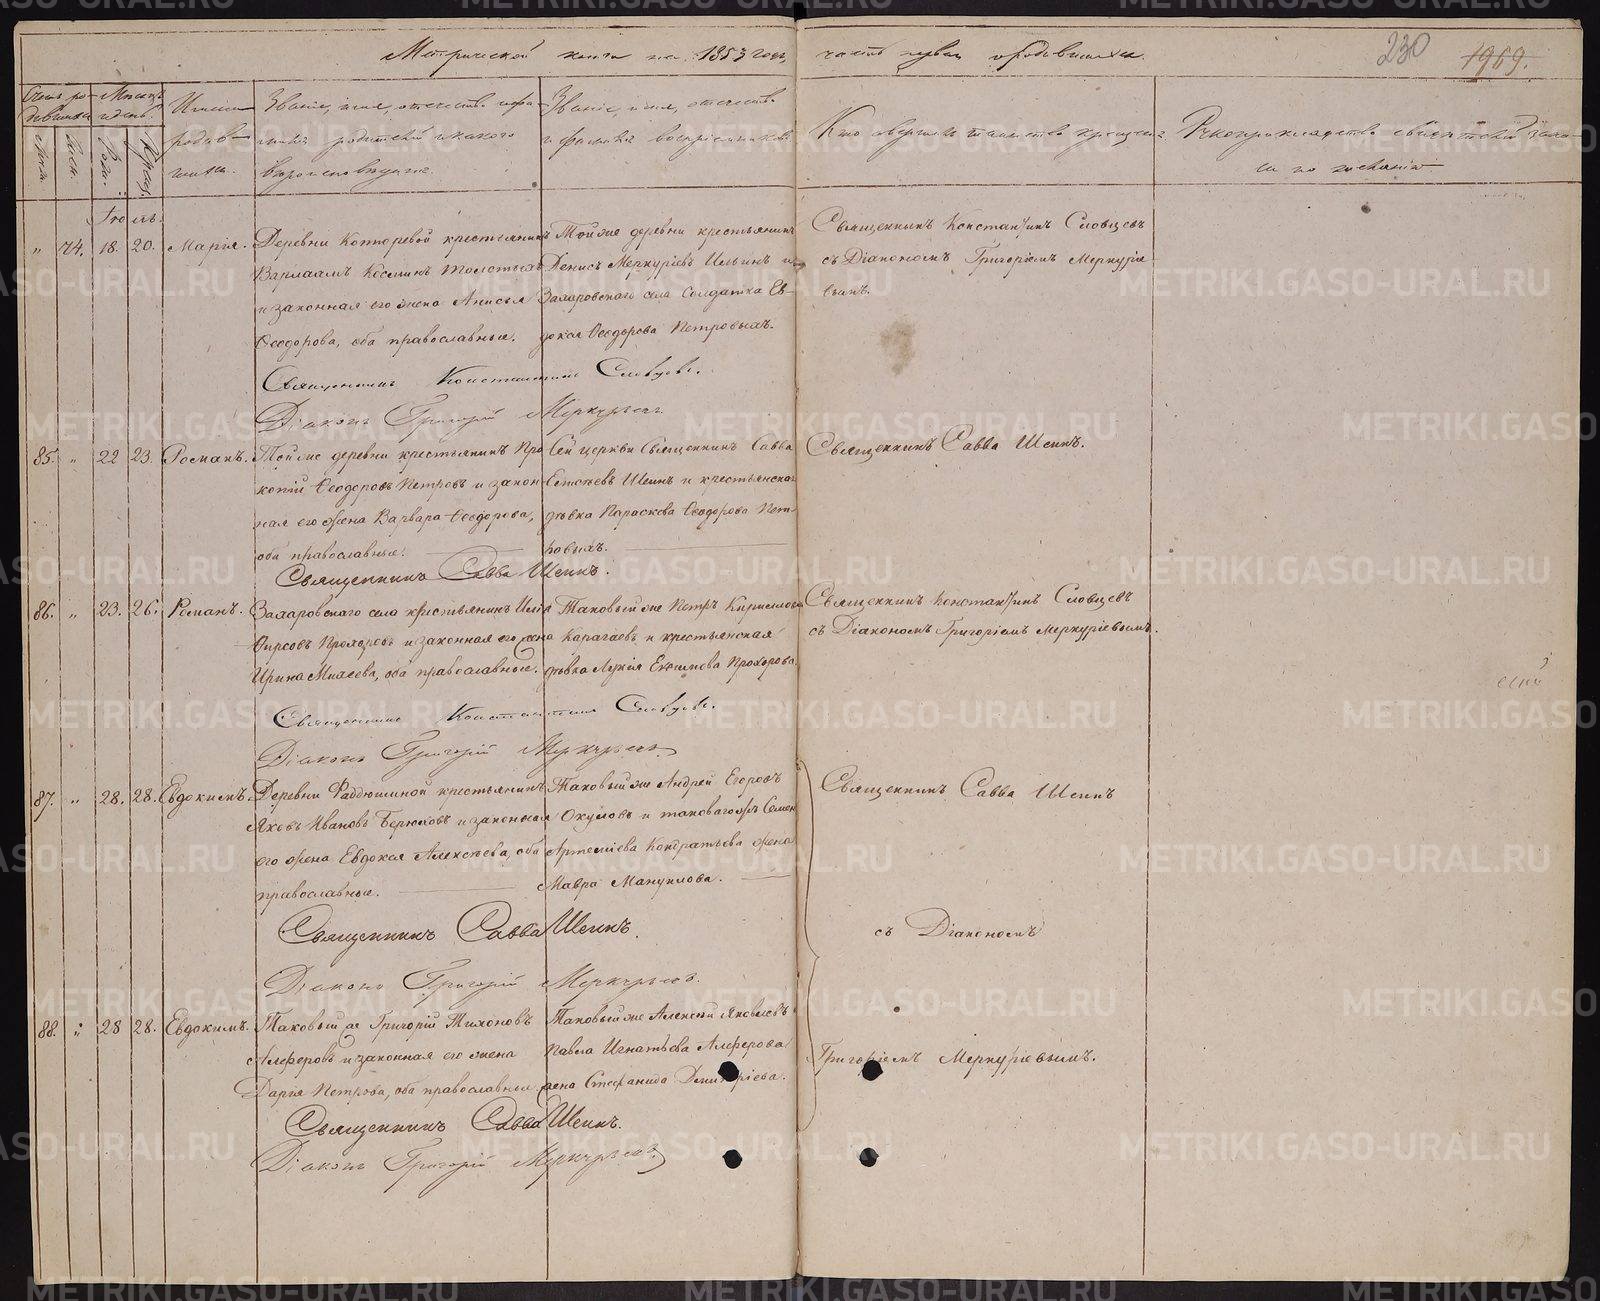 Метрической книги на 1853 годъ, часть первая о родившихся.
230
1969.
Счетъ родившихся
Мѣсяцъ и день.
Имена родившихся.
Званіе, имя, отчество и фамилія родителей и какого вѣроисповѣданія.
Званіе, имя, отчество и фамилія воспріемниковъ.
Кто совершалъ таинство крещенія.
Рукоприкладство свидѣтелей записи по желанію
Іюль.
" 74. 18. 20. Марія.
Деревни крестьянинъ
Варлаамъ Косминъ Толстыхъ
и законная его жена Анисья
Ѳеодорова, оба православные.
Той же деревни крестьянинъ
Денисъ Меркуріевъ Ильинъ и
Захаровскаго села солдатка Ев-
докія Ѳеодорова Петровыхъ.
Священникъ Константинъ Словцевъ
съ Діакономъ Григоріемъ Меркуріе-
вымъ.
Священникъ Константинъ Словцовъ.
Діаконъ Григорій Меркурьевъ.
85. " 22 23. Романъ.
Той же деревни крестьянинъ Про-
копій Ѳеодоровъ Петровъ и закон-
ная его жена Варвара Ѳеодорова,
оба православные.
Сей церкви Священникъ Савва
Шеинъ и крестьянская
дѣвка Параскева Ѳеодорова Пет-
ровыхъ.
Священникъ Савва Шеинъ.
Священникъ Савва Шеинъ.
86. " 23. 26. Романъ.
Захаровскаго села крестьянинъ Илія
Фирсовъ Прохоровъ и законная его жена
Ирина Михеева, оба православные.
Таковый же Петръ Кирилловъ
Карагаевъ и крестьянская
дѣвка Лукія Екимова Прохорова.
Священникъ Константинъ Словцевъ
съ Діакономъ Григоріемъ Меркуріевымъ.
Священникъ Константинъ Словцовъ.
Діаконъ Григорій Меркурьевъ
87. " 28. 28. Евдокимъ.
Деревни Фаддюшиной крестьянинъ
Яковъ Ивановъ и законная
его жена Евдокія Алексѣева, оба
православные.
Таковый же Андрей Егоровъ
Окуловъ и таковаго же Семена
Артемьева Кондратьева жена
Мавра Мануилова.
Священникъ Савва Шеинъ
Священникъ Савва Шеинъ.
съ Діакономъ
Діаконъ Григорій Меркурьевъ.
88. " 28 28. Евдокимъ.
Таковый же Григорій Тихоновъ
Алферовъ и законная его жена
Дарія Петрова, оба православные.
Таковый же Алексей Яковлевъ
Павла Игнатьева Алферова
жена Стефанида Димитріева.
Григоріемъ Меркуріевымъ.
Священникъ Савва Шеинъ.
Діаконъ Григорій Меркурьевъ
METRIKI.GASO-URAL.RU